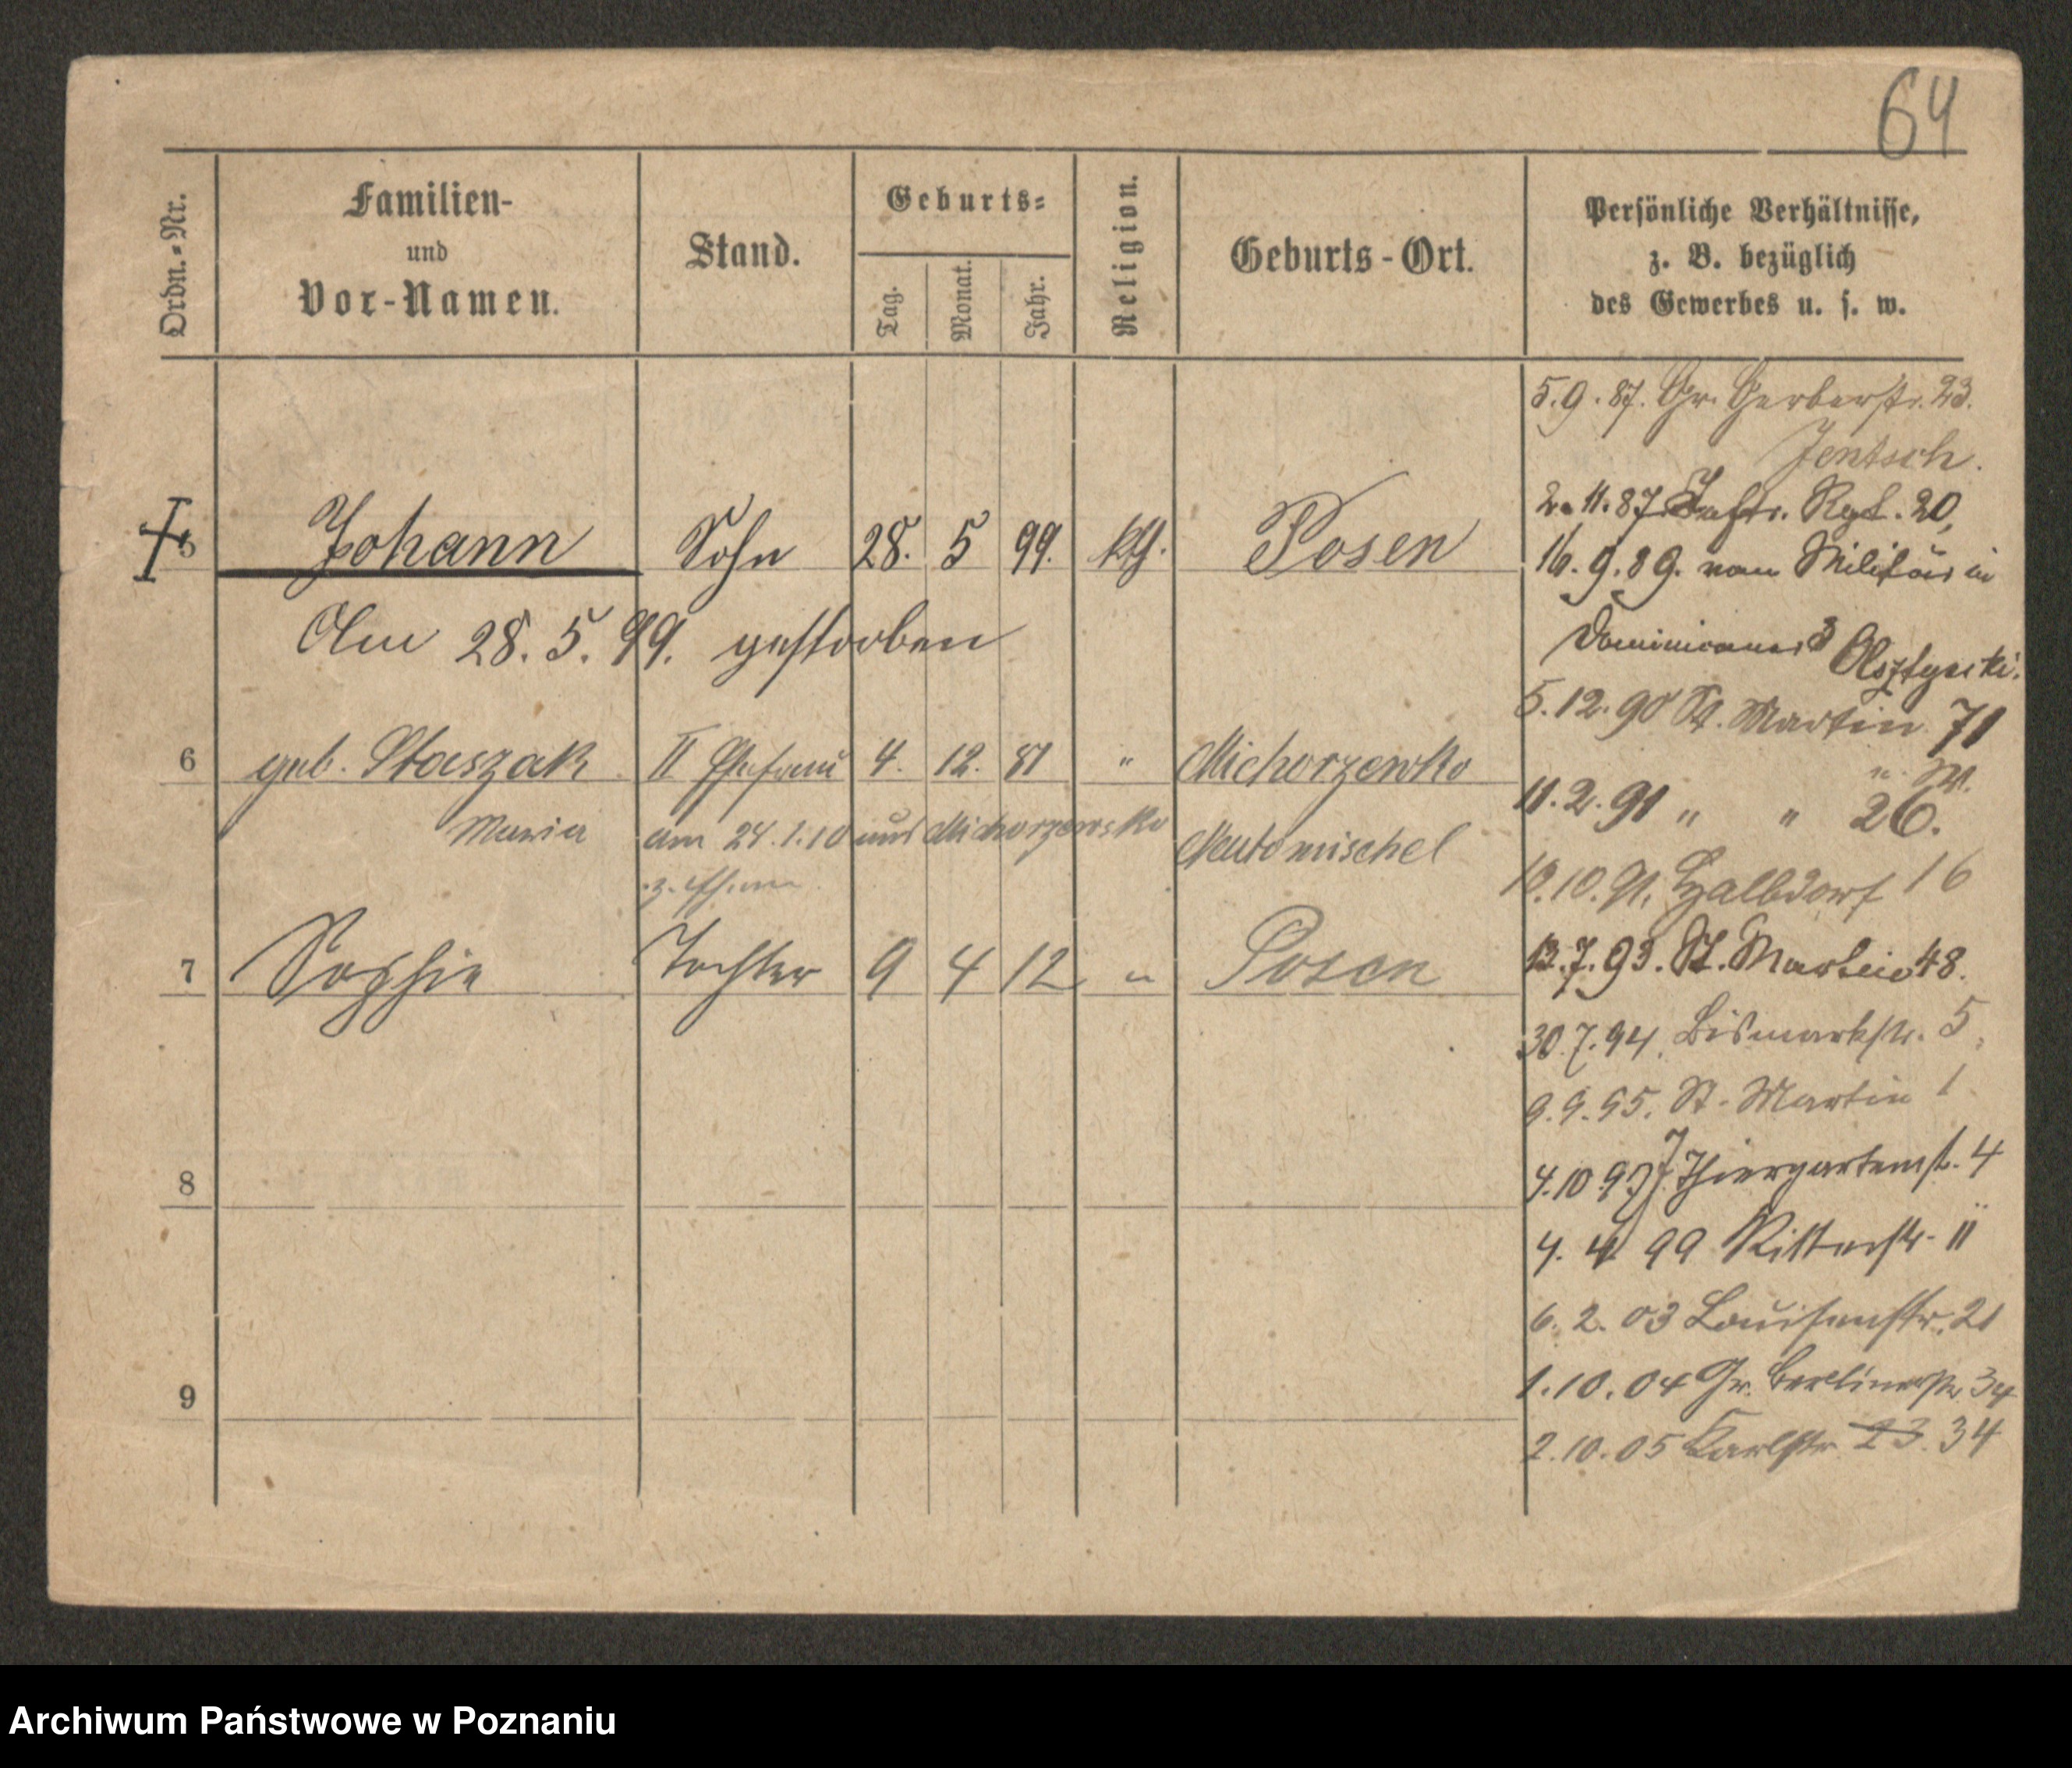 64
Ordn.-Nr. Familien- und Vor-Namen. Stand. Geburts- Tag. Monat. Jahr. Religion. Geburts-Ort. Persönliche Verhältnisse, z. B. bezüglich des Gewerbes u. s. w.
5 Johann Sohn 28. 5 99. kth. Posen
Am 28. 5. 99. gestorben
6 geb. Staszak II Ehefrau 4. 12. 81 " Michorzewko
Maria am 24.1.10 aus Michorzewsko Neutomischel
7 Sophie Tochter 9 4 12 " Posen
8
9
5.9.87. Gr. Gerberstr. 23.
Jentsch.
2.11.87. Inftr. Rgt. 20,
16.9.89. vom Militär in
Dominicaner 3 Olsztynski.
5.12.90 St. Martin 71
11.2.91 " " 26.
10.91. Halbdorf 16
13.7.93. St. Martin 48.
30.7.94. Bismarkstr. 5.
9.9.95. St. Martin 1
4.10 97 Thiergartenst. 4
4. 4 99 Ritterstr. 11
6. 2. 03 Louisenstr. 21
1.10.04 Gr. Berlinerstr. 34
2.10.05 Karlstr. 23. 34
Archiwum Państwowe w Poznaniu